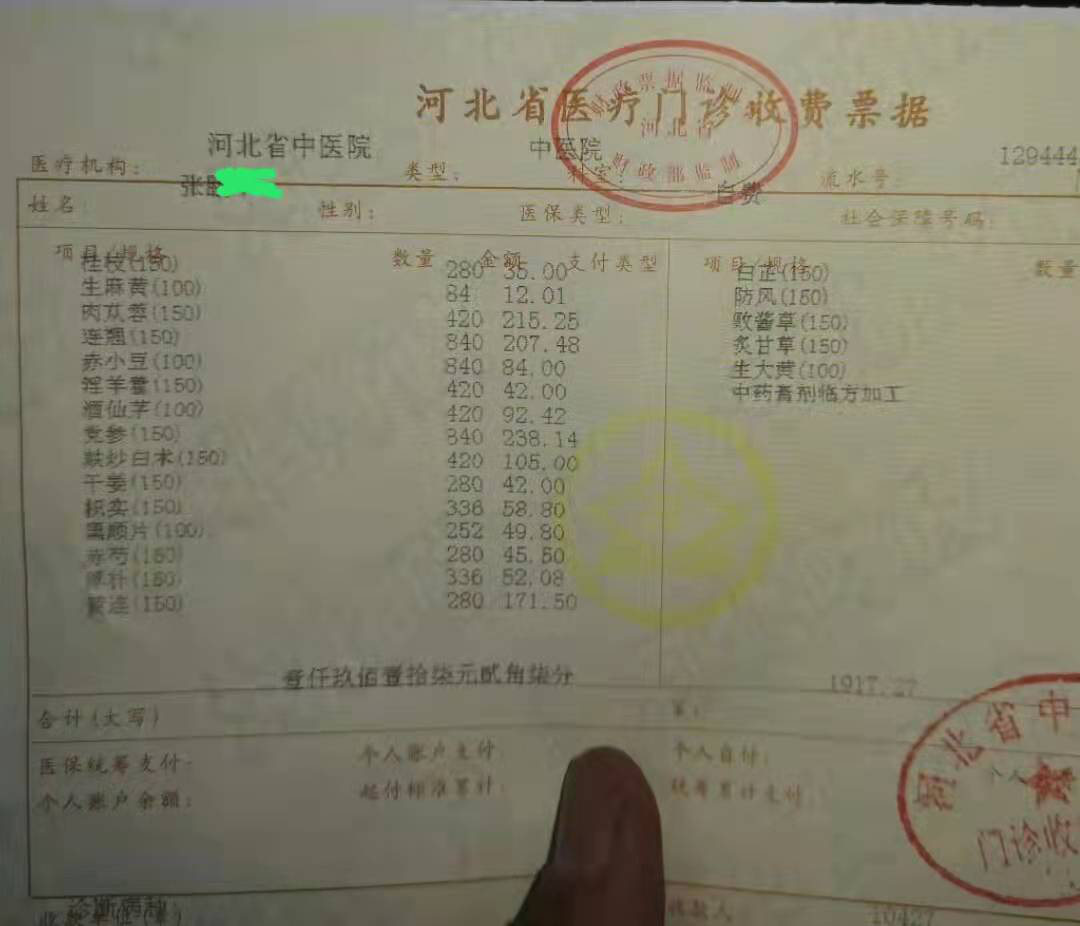 河北省医疗门诊收费票据
财政票据监制
河北省
财政部监制
河北省中医院 中医院 129444
医疗机构: 类型: 科室: 流水号:
张 自费
姓名: 性别: 医保类型: 社会保障号码:
项目/规格 数量 金额 支付类型
桂枝(150) 280 35.00
生麻黄(100) 84 12.01
肉苁蓉(150) 420 215.25
连翘(150) 840 207.48
赤小豆(100) 840 84.00
淫羊藿(150) 420 42.00
酒仙茅(100) 420 92.42
党参(150) 840 238.14
麸炒白术(150) 420 105.00
干姜(150) 280 42.00
枳实(150) 336 58.80
黑顺片(100) 252 49.80
赤芍(150) 280 45.50
厚朴(150) 336 52.08
黄连(150) 280 171.50
项目/规格 数量
白芷(150)
防风(150)
败酱草(150)
炙甘草(150)
生大黄(100)
中药膏剂临方加工
壹仟玖佰壹拾柒元贰角柒分 1917.27
合计(大写)
医保统筹支付: 个人账户支付: 个人自付:
个人账户余额: 起付标准累计: 统筹累计支付:
河北省中
门诊收
诊断病种
收款单位(章) 收款人 10427